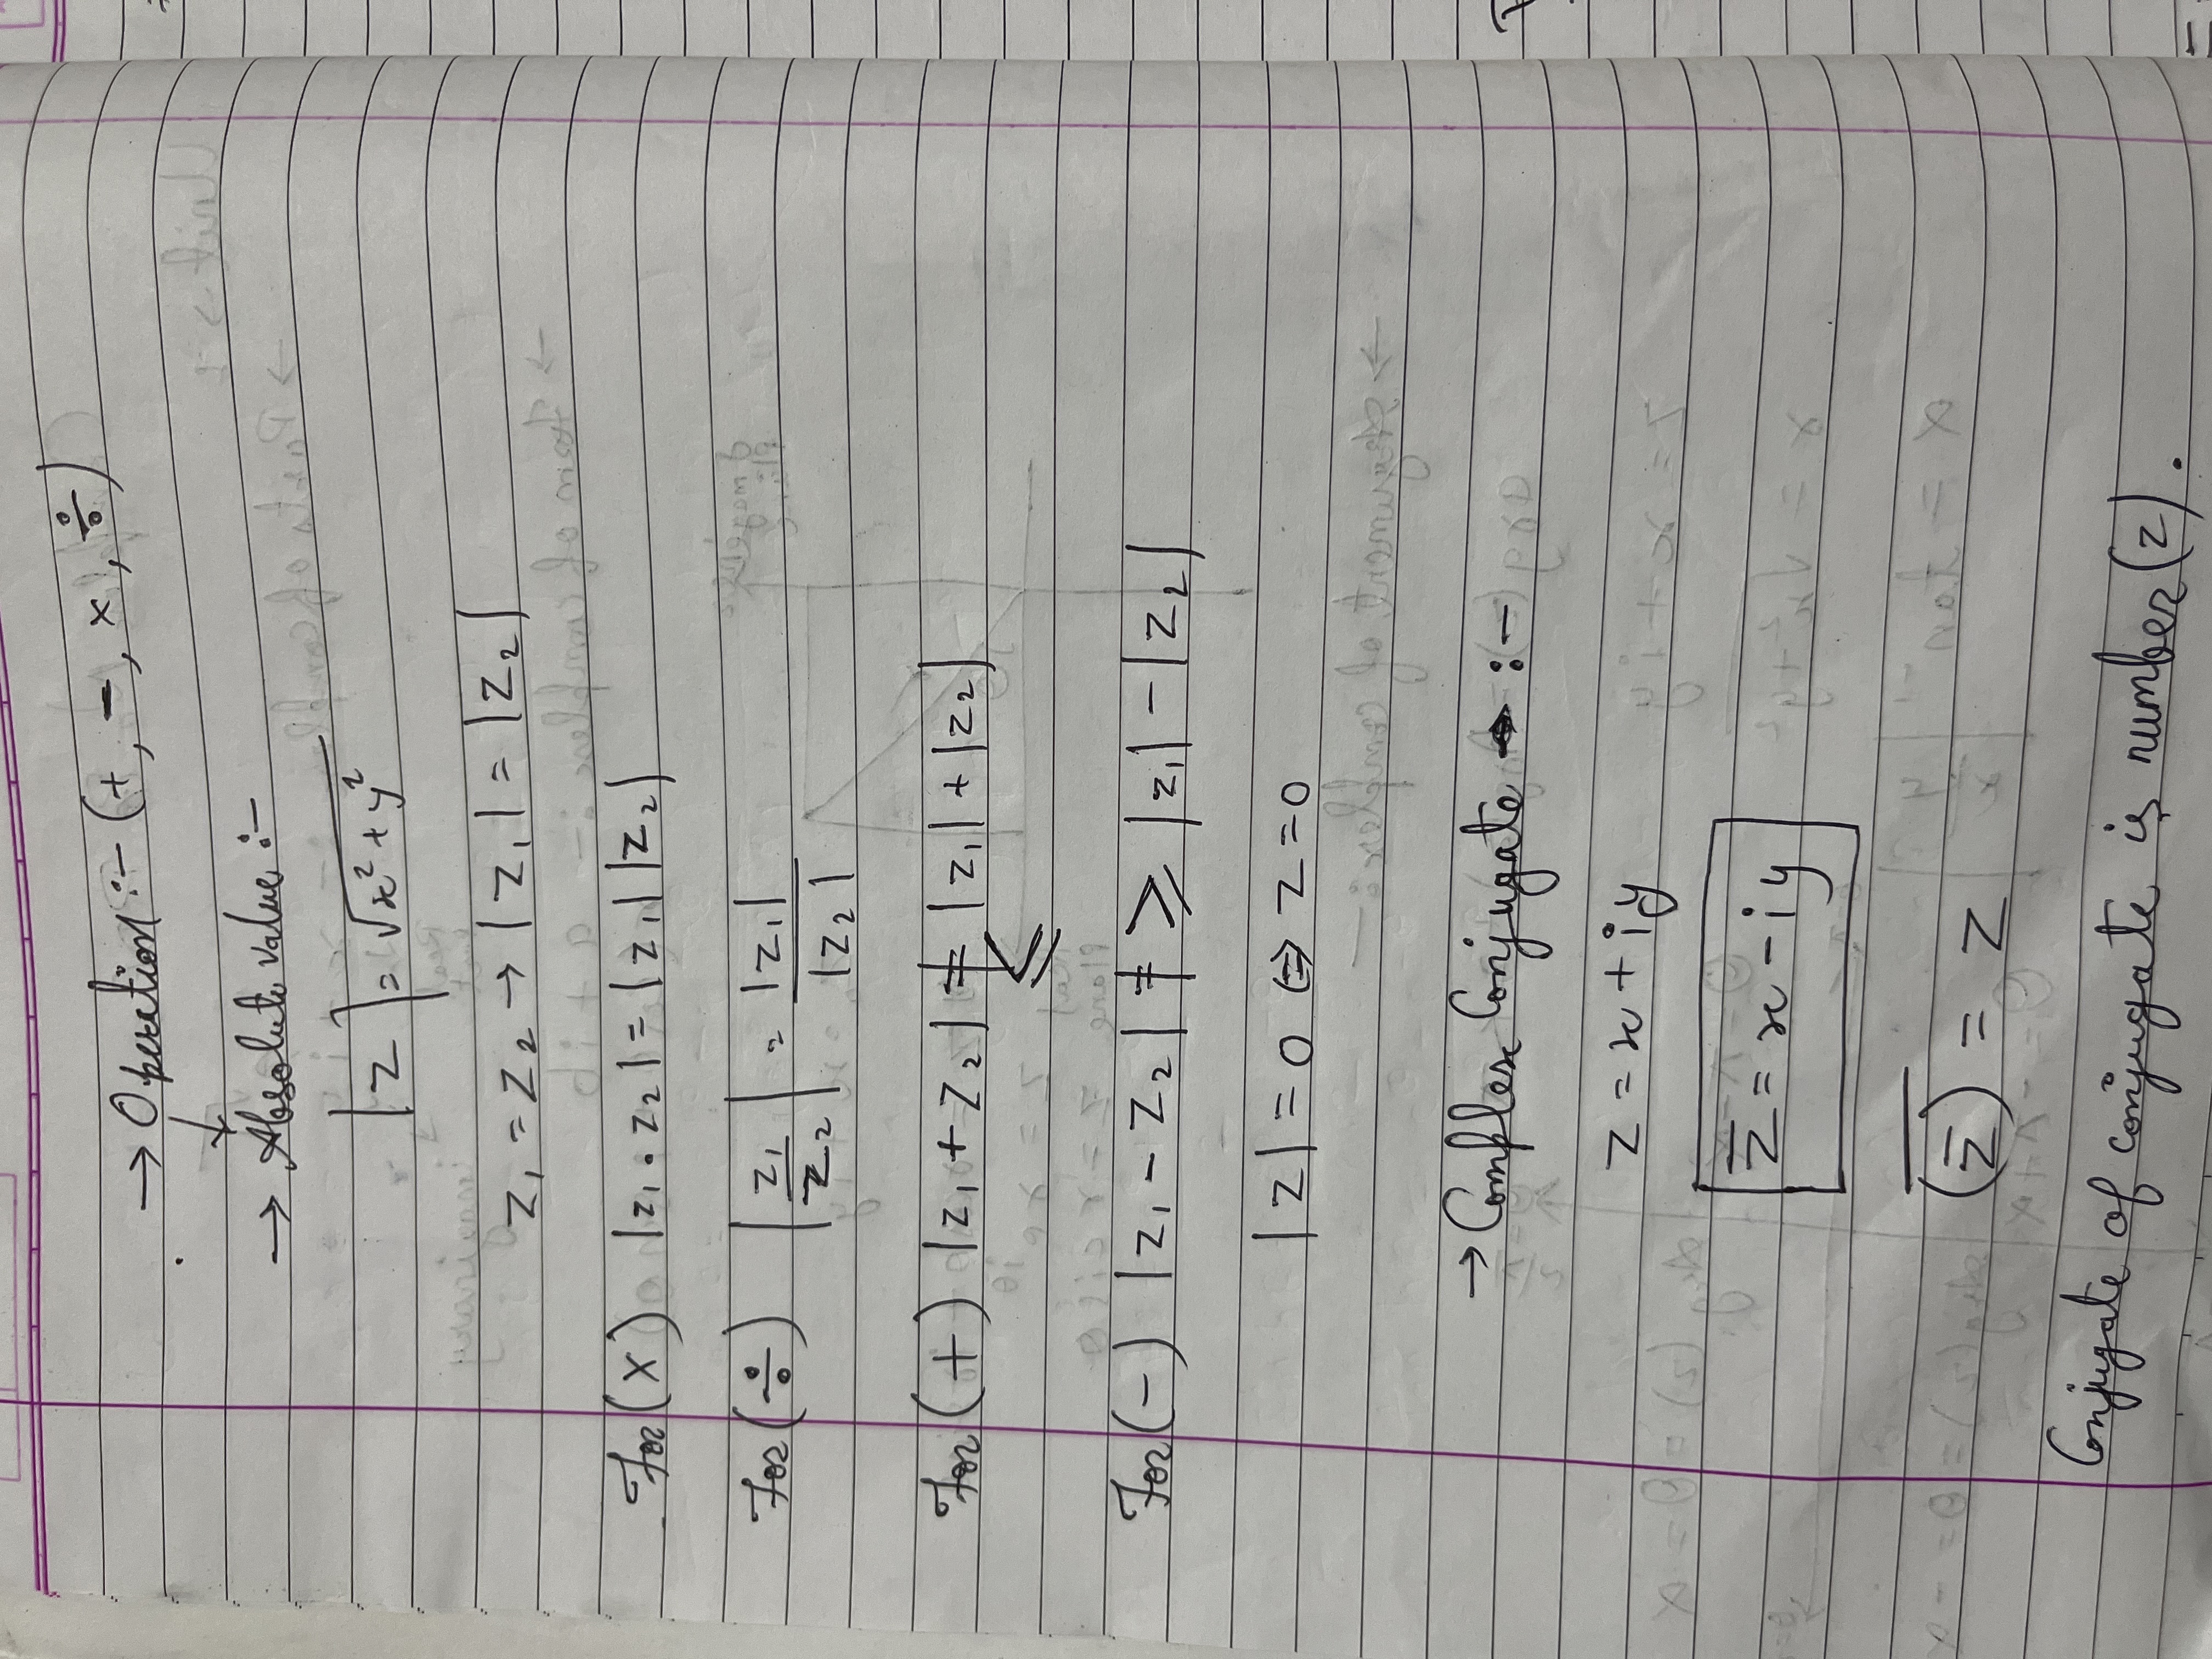 → Operation :- (+, -, ×, ÷)
↓
→ Absolute value :-
|z| = √x² + y²
z₁ = z₂ → |z₁| = |z₂|
For (×) |z₁ . z₂| = |z₁| |z₂|
For (÷) |z₁/z₂| = |z₁|/|z₂|
For (+) |z₁ + z₂| ≠ |z₁| + |z₂|
≤
For (-) |z₁ - z₂| ≠ ≥ |z₁| - |z₂|
|z| = 0 ⇔ z = 0
→ Complex Conjugate → :-
z = x + iy
z̅ = x - iy
\overline{(z̅)} = z
Conjugate of conjugate is number (z).